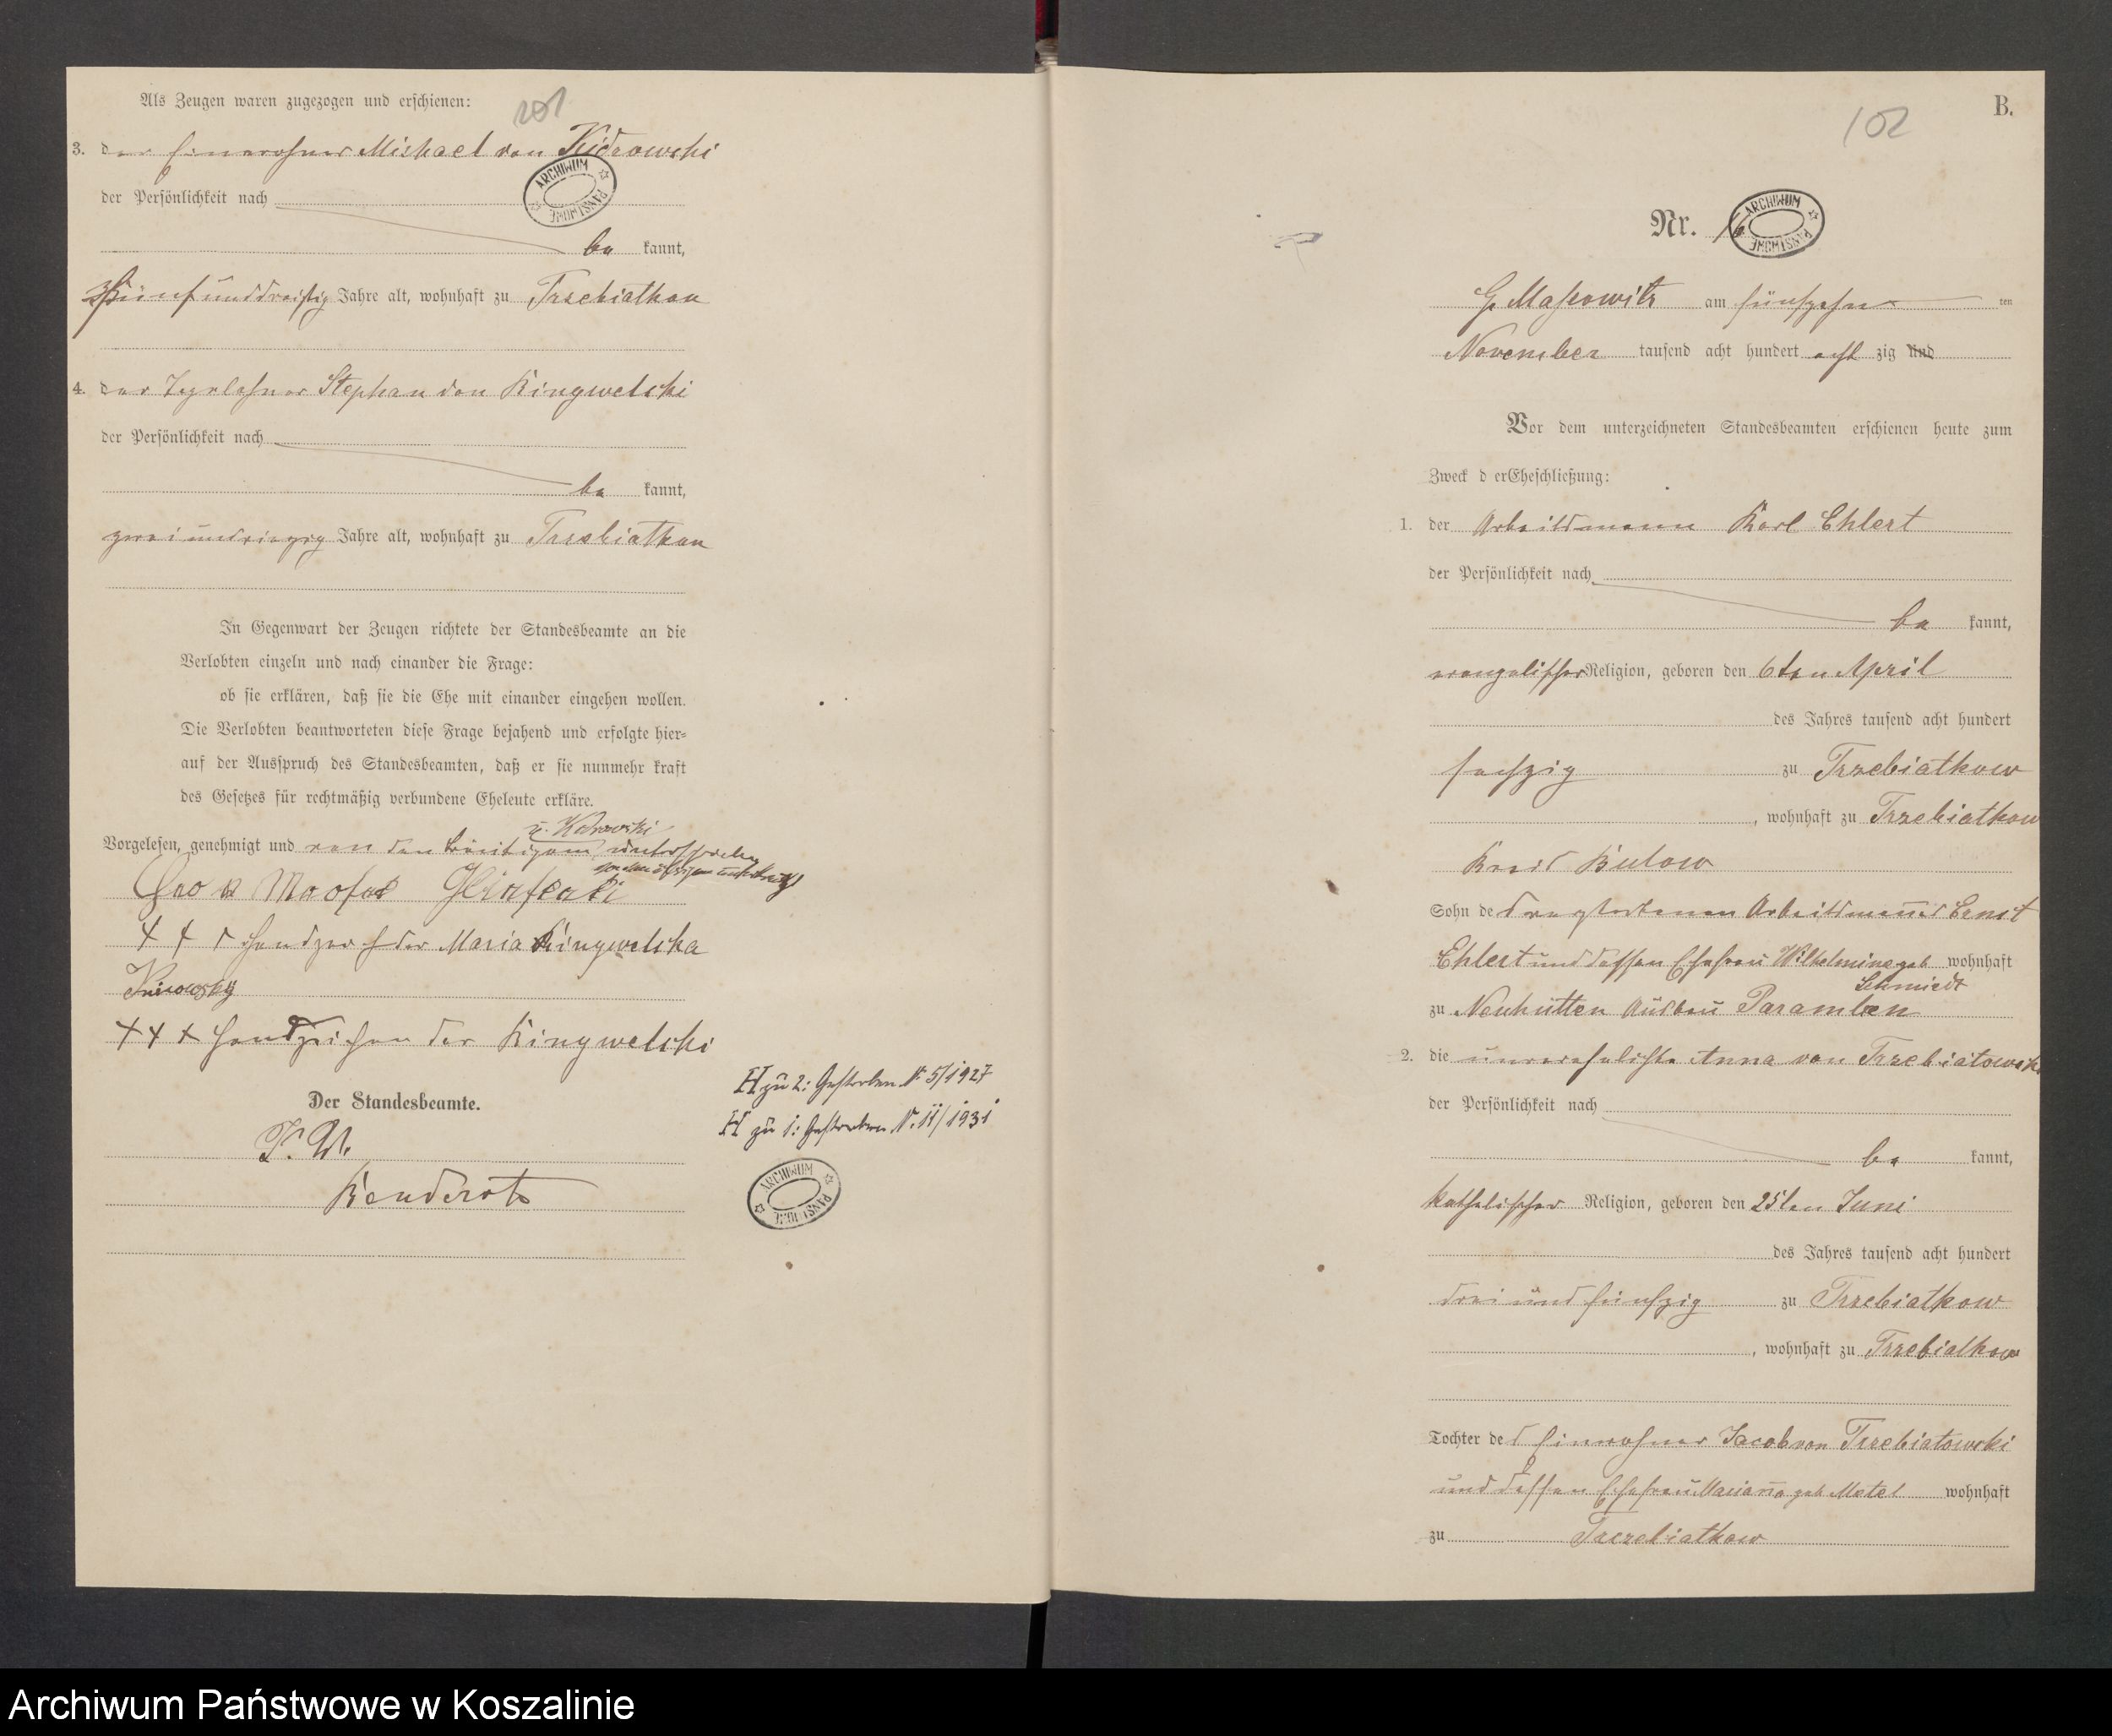 Als Zeugen waren zugezogen und erschienen:
201
3. der Einwohner Michael von Kidrowski
der Persönlichkeit nach
be kannt,
fünfunddreißig Jahre alt, wohnhaft zu Trzebiatkow
4. der Tagelöhner Stephan von Kingwelski
der Persönlichkeit nach
be kannt,
zweiundvierzig Jahre alt, wohnhaft zu Trzebiatkow
In Gegenwart der Zeugen richtete der Standesbeamte an die
Verlobten einzeln und nach einander die Frage:
ob sie erklären, daß sie die Ehe mit einander eingehen wollen.
Die Verlobten beantworteten diese Frage bejahend und erfolgte hier-
auf der Ausspruch des Standesbeamten, daß er sie nunmehr kraft
des Gesetzes für rechtmäßig verbundene Eheleute erkläre.
Vorgelesen, genehmigt und von dem Bräutigam u. Kidrowski unterschrieben
von den übrigen unterkreuzt
+ + + Handzeichen der Maria Kingwelska
+ + + Handzeichen des Kingwelski
H zu 2: Gestorben Nr. 5/1927
H zu 1: Gestorben Nr. 11/1931
Der Standesbeamte.
ARCHIWUM PAŃSTWOWE
B.
102
Nr. 16
ARCHIWUM PAŃSTWOWE
G. Massowitz am fünfzehn ten
November tausend acht hundert acht zig und
Vor dem unterzeichneten Standesbeamten erschienen heute zum
Zweck d erEheschließung:
1. der Arbeitsmann Karl Ehlert
der Persönlichkeit nach
be kannt,
evangelischer Religion, geboren den 6ten April
des Jahres tausend acht hundert
sechzig zu Trzebiatkow
, wohnhaft zu Trzebiatkow
Kreis Bütow
Sohn de s verstorbenen Arbeitsmanns Ernst
Ehlert und dessen Ehefrau Wilhelmine geb Schmiedt wohnhaft
zu Neuhütten Ausbau Paramben
2. die unverehelichte Anna von Trzebiatowski
der Persönlichkeit nach
be kannt,
katholischer Religion, geboren den 25ten Juni
des Jahres tausend acht hundert
drei und fünfzig zu Trzebiatkow
, wohnhaft zu Trzebiatkow
Tochter de s Einwohner Jacob von Trzebiatowski
und dessen Ehefrau Marianna geb Metel wohnhaft
zu Trzebiatkow
Archiwum Państwowe w Koszalinie